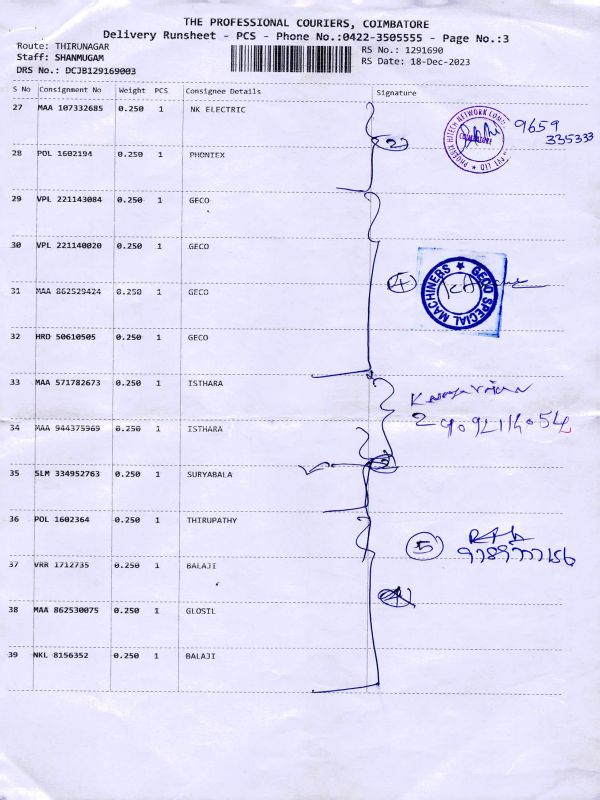 THE PROFESSIONAL COURIERS, COIMBATORE
Delivery Runsheet - PCS - Phone No.:0422-3505555 - Page No.:3
Route: THIRUNAGAR RS No.: 1291690
Staff: SHANMUGAM RS Date: 18-Dec-2023
DRS No.: DCJB129169003
S No Consignment No Weight PCS Consignee Details Signature
27 MAA 107332685 0.250 1 NK ELECTRIC
9659
335333
2
28 POL 1602194 0.250 1 PHONIEX
29 VPL 221143084 0.250 1 GECO
30 VPL 221140020 0.250 1 GECO
31 MAA 862529424 0.250 1 GECO
4
GECO SPECIAL MACHINERS
32 HRD 50610505 0.250 1 GECO
33 MAA 571782673 0.250 1 ISTHARA
34 MAA 944375969 0.250 1 ISTHARA
35 SLM 334952763 0.250 1 SURYABALA
36 POL 1602364 0.250 1 THIRUPATHY
5
37 VRR 1712735 0.250 1 BALAJI
38 MAA 862530075 0.250 1 GLOSIL
39 NKL 8156352 0.250 1 BALAJI